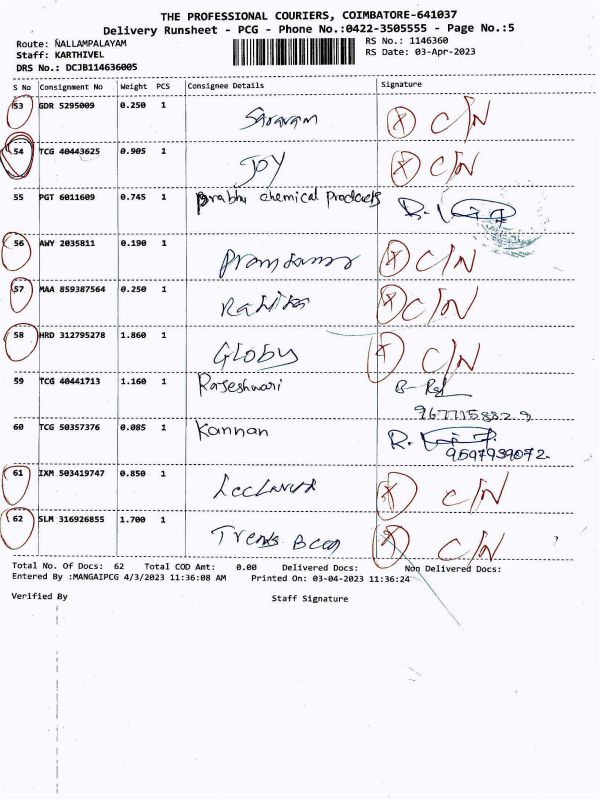 THE PROFESSIONAL COURIERS, COIMBATORE-641037
Delivery Runsheet - PCG - Phone No.:0422-3505555 - Page No.:5
Route: NALLAMPALAYAM RS No.: 1146360
Staff: KARTHIVEL RS Date: 03-Apr-2023
DRS No.: DCJB114636005
S No Consignment No Weight PCS Consignee Details Signature
53 GDR 5295009 0.250 1 C/N
54 TCG 40443625 0.905 1 JOY C/N
55 PGT 6011609 0.745 1 prabhu chemical Products
56 AWY 2035811 0.190 1 C/N
57 MAA 859387564 0.250 1 C/N
58 HRD 312795278 1.860 1 GLOBY C/N
59 TCG 40441713 1.160 1 Rajeshwari
9677158829
60 TCG 50357376 0.085 1 Kannan
9597939072
61 IXM 503419747 0.850 1 C/N
62 SLM 316926855 1.700 1 Trends C/N
Total No. Of Docs: 62 Total COD Amt: 0.00 Delivered Docs: Non Delivered Docs:
Entered By :MANGAIPCG 4/3/2023 11:36:08 AM Printed On: 03-04-2023 11:36:24
Verified By Staff Signature